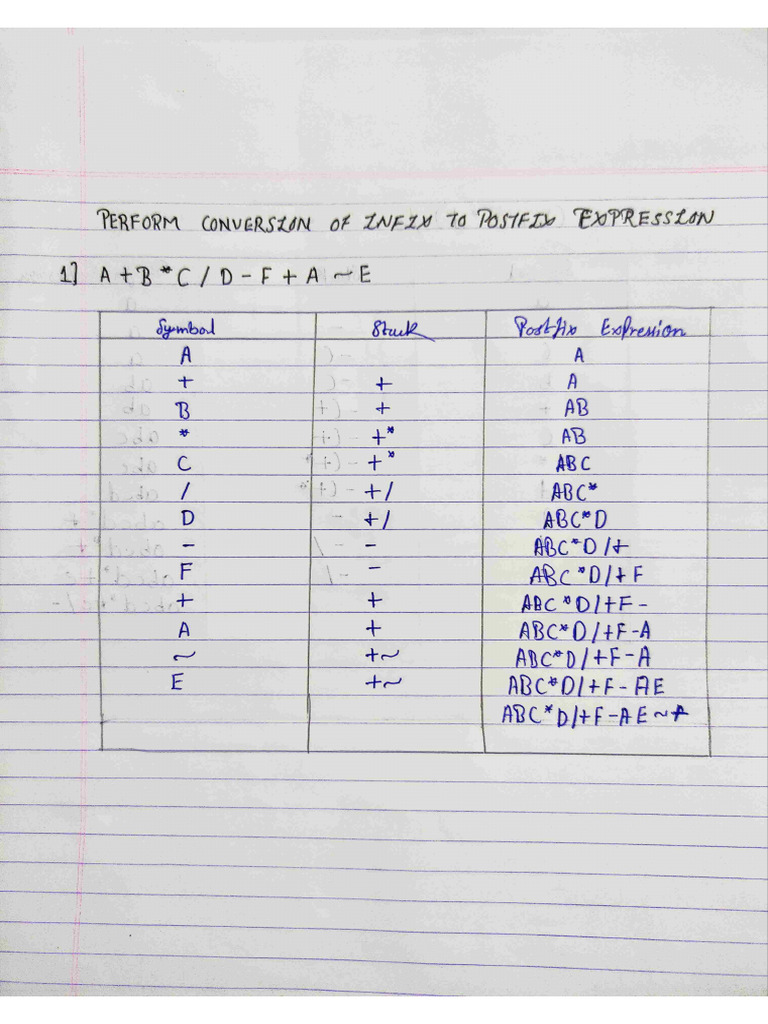 PERFORM CONVERSION OF INFIX TO POSTFIX EXPRESSION
1] A + B * C / D - F + A ~ E
Symbol Stack Postfix Expression
A A
+ + A
B + AB
* +* AB
C +* ABC
/ +/ ABC*
D +/ ABC*D
- - ABC*D/+
F - ABC*D/+F
+ + ABC*D/+F-
A + ABC*D/+F-A
~ +~ ABC*D/+F-A
E +~ ABC*D/+F-AE
ABC*D/+F-AE~+